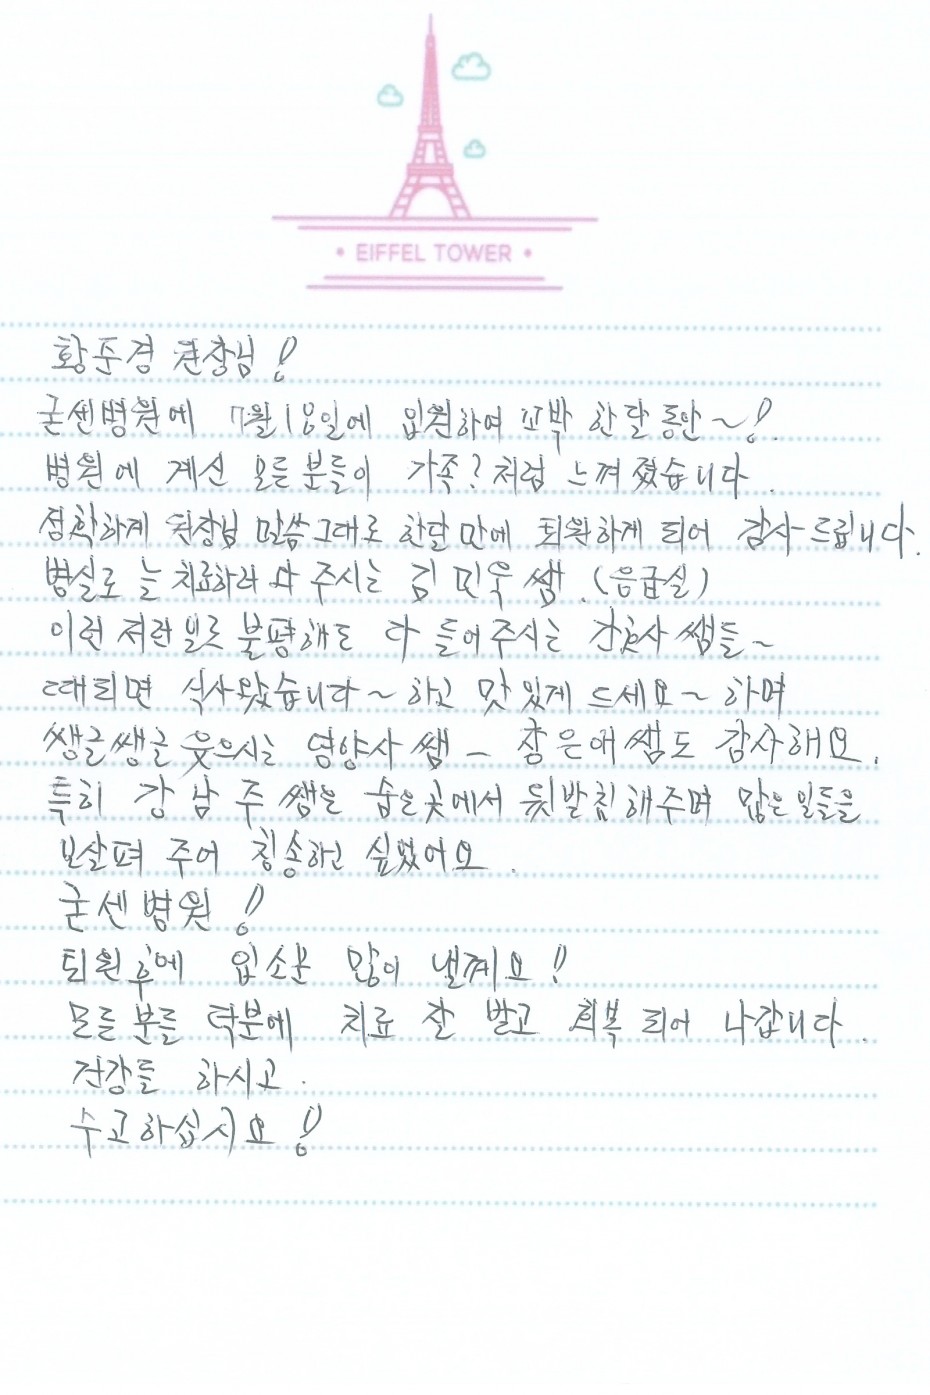 • EIFFEL TOWER •
황준경 원장님!
굳센병원에 7월18일에 입원하여 꼬박 한달동안~!
병원에 계신 모든분들이 가족?처럼 느껴졌습니다.
정확하게 원장님 말씀그대로 한달만에 퇴원하게 되어 감사드립니다.
병실로 늘 치료하러 와 주시는 김민욱쌤.(응급실)
이런저런일로 불평해도 다 들어주시는 간호사쌤들~
때되면 식사왔습니다~하고 맛있게 드세요~하며
쌩글쌩글 웃으시는 영양사쌤- 장은애쌤도 감사해요.
특히 강남주쌤은 숨은곳에서 뒷받침해주며 많은일들을
보살펴 주어 칭송하고 싶었어요.
굳센병원!
퇴원후에 입소문 많이 낼께요!
모든분들 덕분에 치료 잘 받고 회복되어 나갑니다.
건강들 하시고.
수고하십시요!